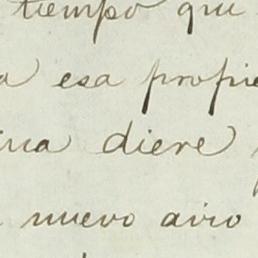 tiempo que
a esa propie
ina diere
nuevo aviso